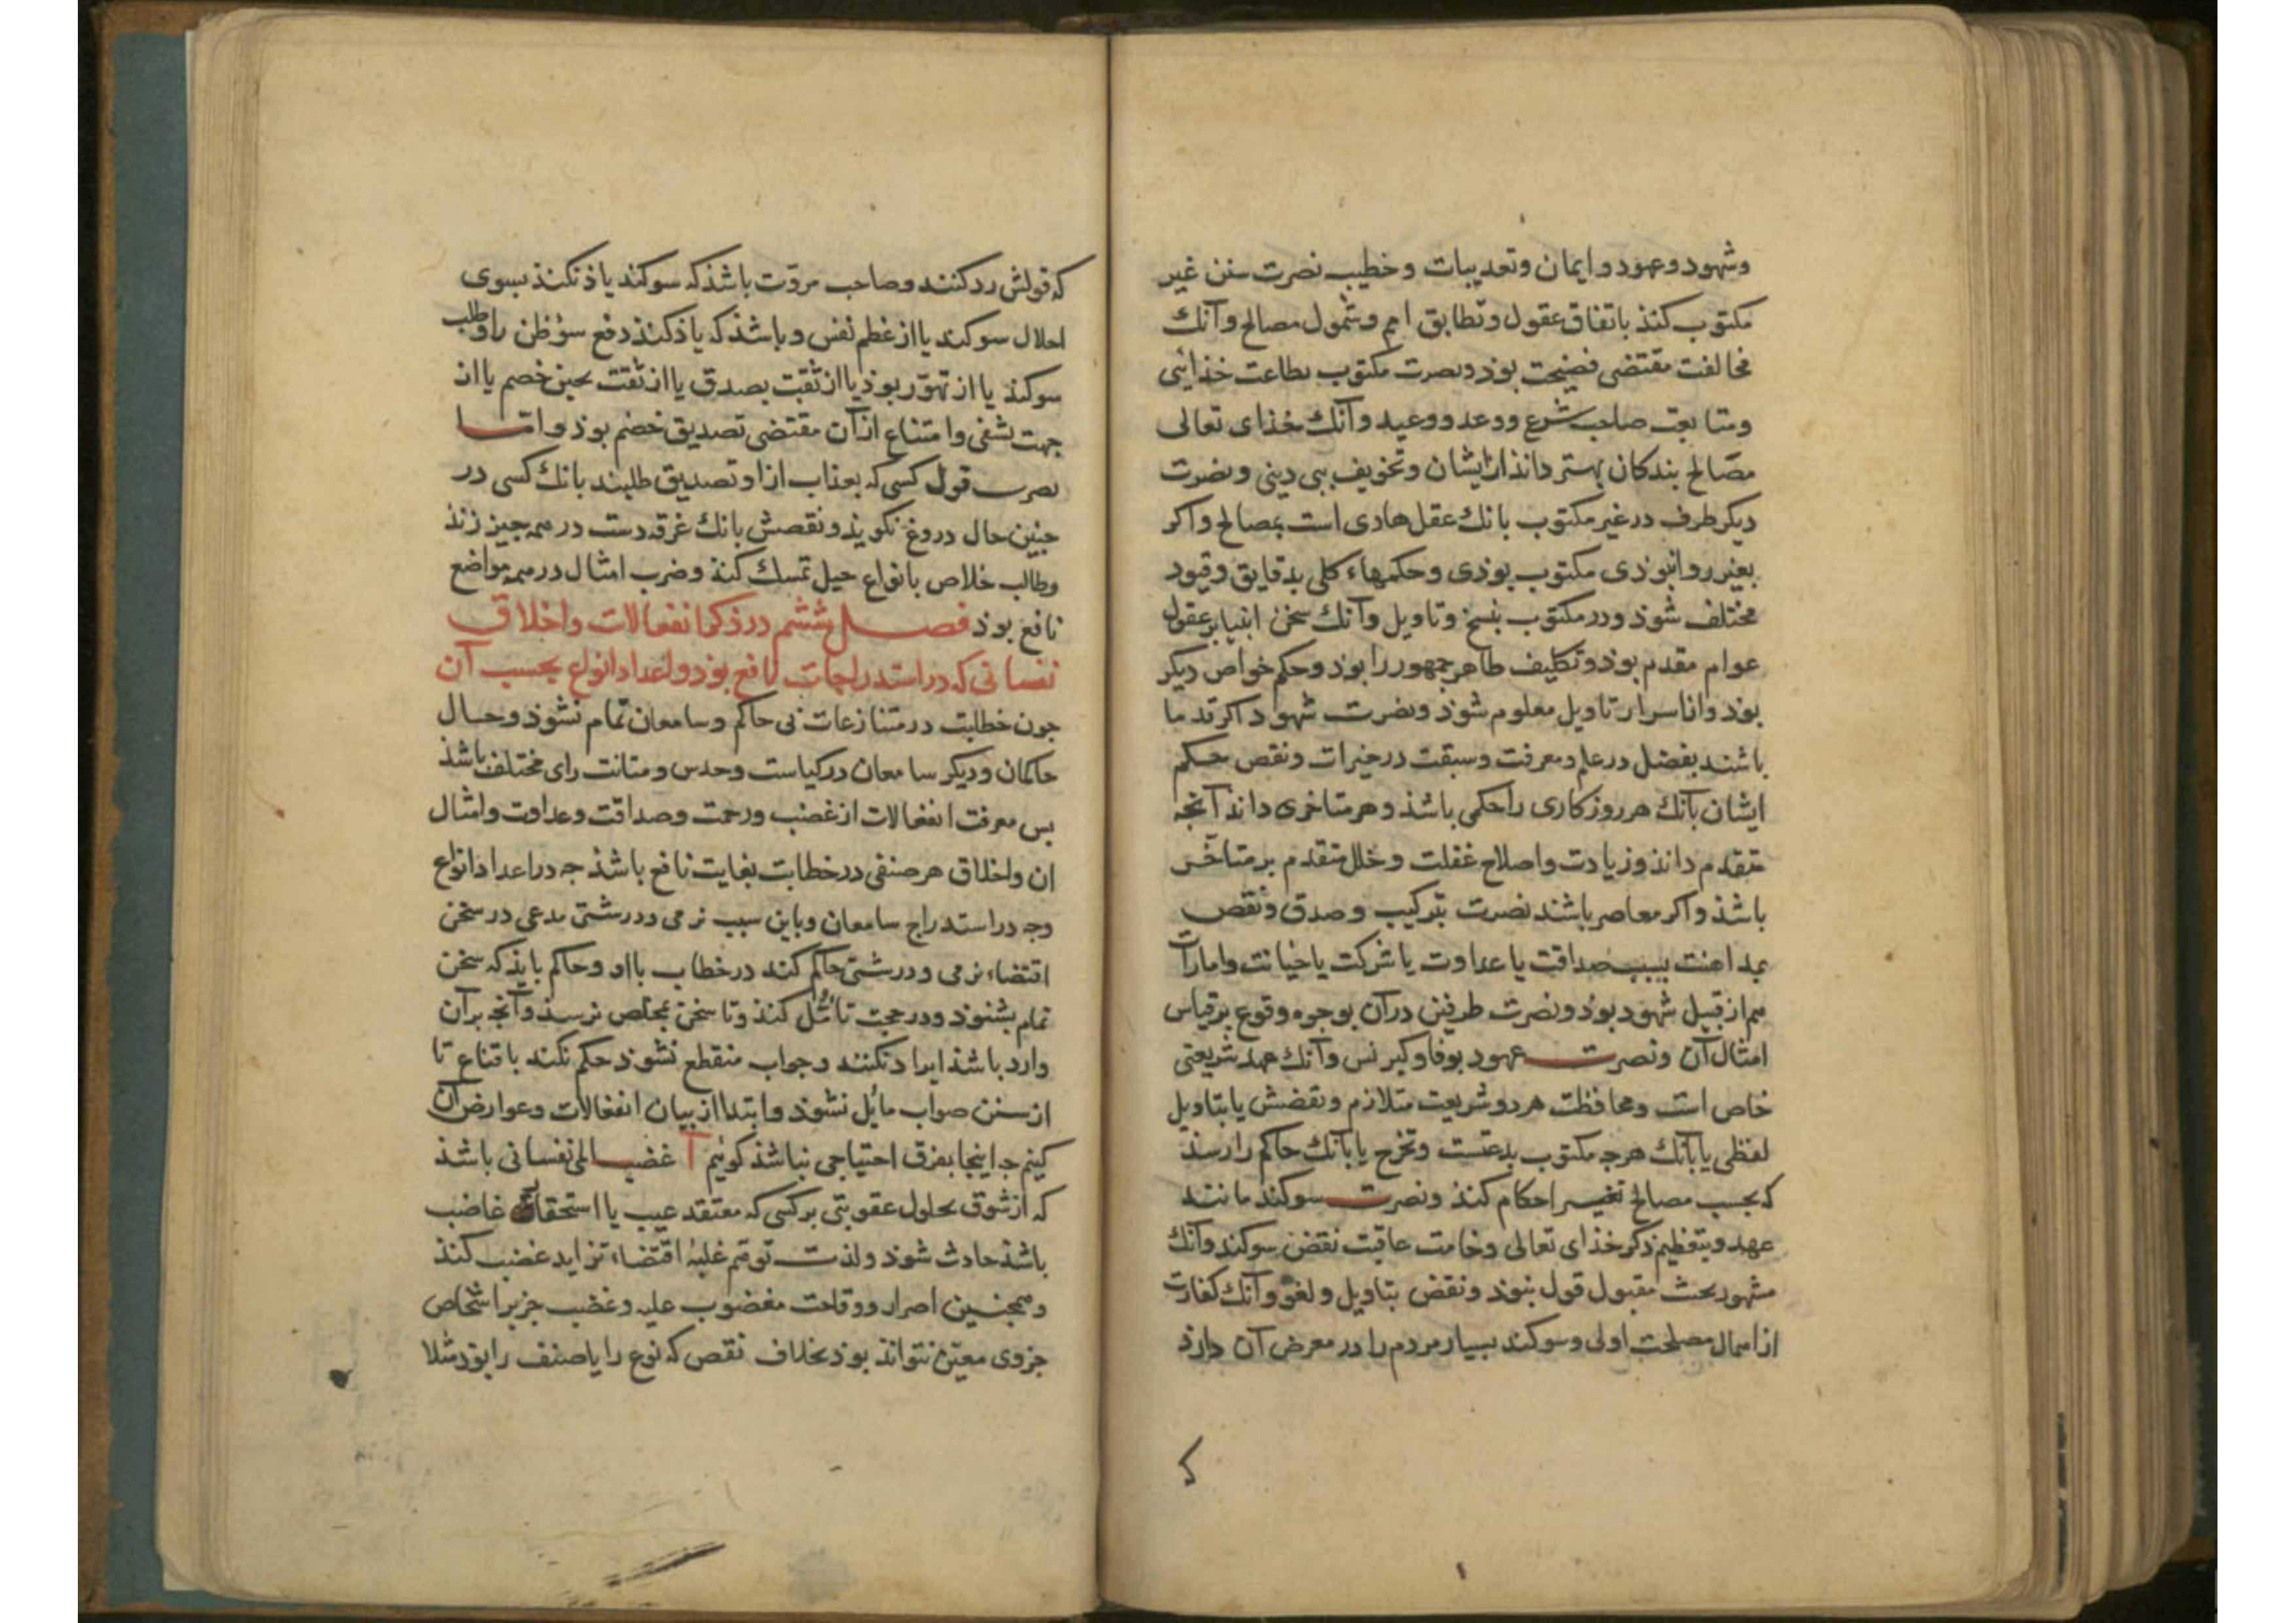 وشهود وعهود وایمان وتعدیبات وخطیب نصرت سنن غیر
مکتوب کنذ باتفاق عقول وتطابق امم وشمول مصالح وآنك
مخالفت مقتضی فضیحت بوذ ونصرت مکتوب بطاعت خذائی
ومتابعت صاحب شرع ووعد ووعید وآنك خذای تعالی
مصالح بندکان بهتر دانذ از ایشان وتخویف ببی دینی ونصرت
دیکر طرف در غیر مکتوب بانك عقل هادی است بمصالح واکر
بغیر روا نبوذی مکتوب بوذی وحکمهاء کلی بدقایق وقیود
مختلف شوذ ودر مکتوب بنسخ وتاویل وآنك سخن انبیا بر عقول
عوام مقدم بوذ وتکلیف ظاهر جمهور را بوذ وحکم خواص دیکر
بوذ وانا سرار تاویل معلوم شوذ ونصرت شهود اکر قدما
باشند بفضل در علم ومعرفت وسبقت در خیرات ونقض حکم
ایشان بآنك هر روزکاری را حکمی باشذ وهر متاخری داند آنجه
متقدم دانذ وزیادت واصلاح غفلت وخلل متقدم بر متاخر
باشذ واکر معاصر باشند نصرت بتزکیب وصدق ونقض
بمداهنت بسبب صداقت یا عداوت یا شرکت یا خیانت وامارات
هم از قبیل شهود بوذ ونصرت طرفین در آن بوجوه وقوع بر قیاس
امثال آن ونصرت عهود بوفا وکبر نس وآنك عهد شریعتی
خاص است ومحافظت هر دو شریعت متلازم ونقضش یا بتاویل
لفظی یا بآنك هرجه مکتوب بدعتست وتخرج یا بآنك حاکم را رسذ
که بحسب مصالح تغییر احکام کنذ ونصرت سوکند مانند
عهد وبتعظیم ذکر خذای تعالی وخامت عاقبت نقض سوکند وآنك
مشهور بحث مقبول قول نبوذ ونقض بتاویل ولغو وآنك کفارت
از اهمال مصلحت اولی وسوکند بسیار مردم را در معرض آن دارذ
که قولش رد کنند وصاحب مروّت باشذ که سوکند یاذ نکنذ بسوی
اجلال سوکند یا از عظم نفس وباشذ که یاذ کنذ دفع سؤ ظن را وطلب
سوکند یا از تهوّر بوذ یا از ثقت بصدق یا از ثقت بجبن خصم یا از
جهت تشفی وامتناع از آن مقتضی تصدیق خصم بوذ واما
نصرت قول کسی که بعذاب از او تصدیق طلبند بانك کسی در
جنین حال دروغ نکویذ ونقضش بانك غرقه دست در همه جیز زنذ
وطالب خلاص بانواع حیل تمسك کنذ وضرب امثال در همه مواضع
نافع بوذ فصل ششم در ذکر انفعالات واخلاق
نفسانی که در استدراجات نافع بوذ واعداد انواع بحسب آن
جون خطابت در متنازعات بی حاکم وسامعان تمام نشوذ وحال
حاکمان ودیکر سامعان در کیاست وحدس ومتانت رای مختلف باشذ
بس معرفت انفعالات از غضب ورحمت وصداقت وعداوت وامثال
ان واخلاق هر صنفی در خطابت بغایت نافع باشذ جه در اعداد انواع
وجه در استدراج سامعان وباین سبب نرمی ودرشتی مدعی در سخن
اقتضاء نرمی ودرشتی حاکم کند در خطاب با او وحاکم بایذ که سخن
تمام بشنوذ ودر حجت تأمّل کنذ وتا سخن بمخلص نرسذ وآنجه بر آن
وارد باشذ ایراد نکنند وجواب منقطع نشوذ حکم نکند باقناع تا
از سنن صواب مائل نشوذ وابتدا از بیان انفعالات وعوارض آن
کنیم جه اینجا بفرق احتیاجی نباشذ کوئیم آ غضب المی نفسانی باشذ
که از شوق بحلول عقوبتی بر کسی که معتقد عیب یا استحقاق غاضب
باشذ حادث شوذ ولذت توهّم غلبهٔ اقتضاء تزاید غضب کنذ
وهمجنین اصرار ووقاحت مغضوب علیه وغضب جز بر اشخاص
جزوی معیّن نتواند بوذ بخلاف نقص که نوع را یا صنف را بوذ مثلا